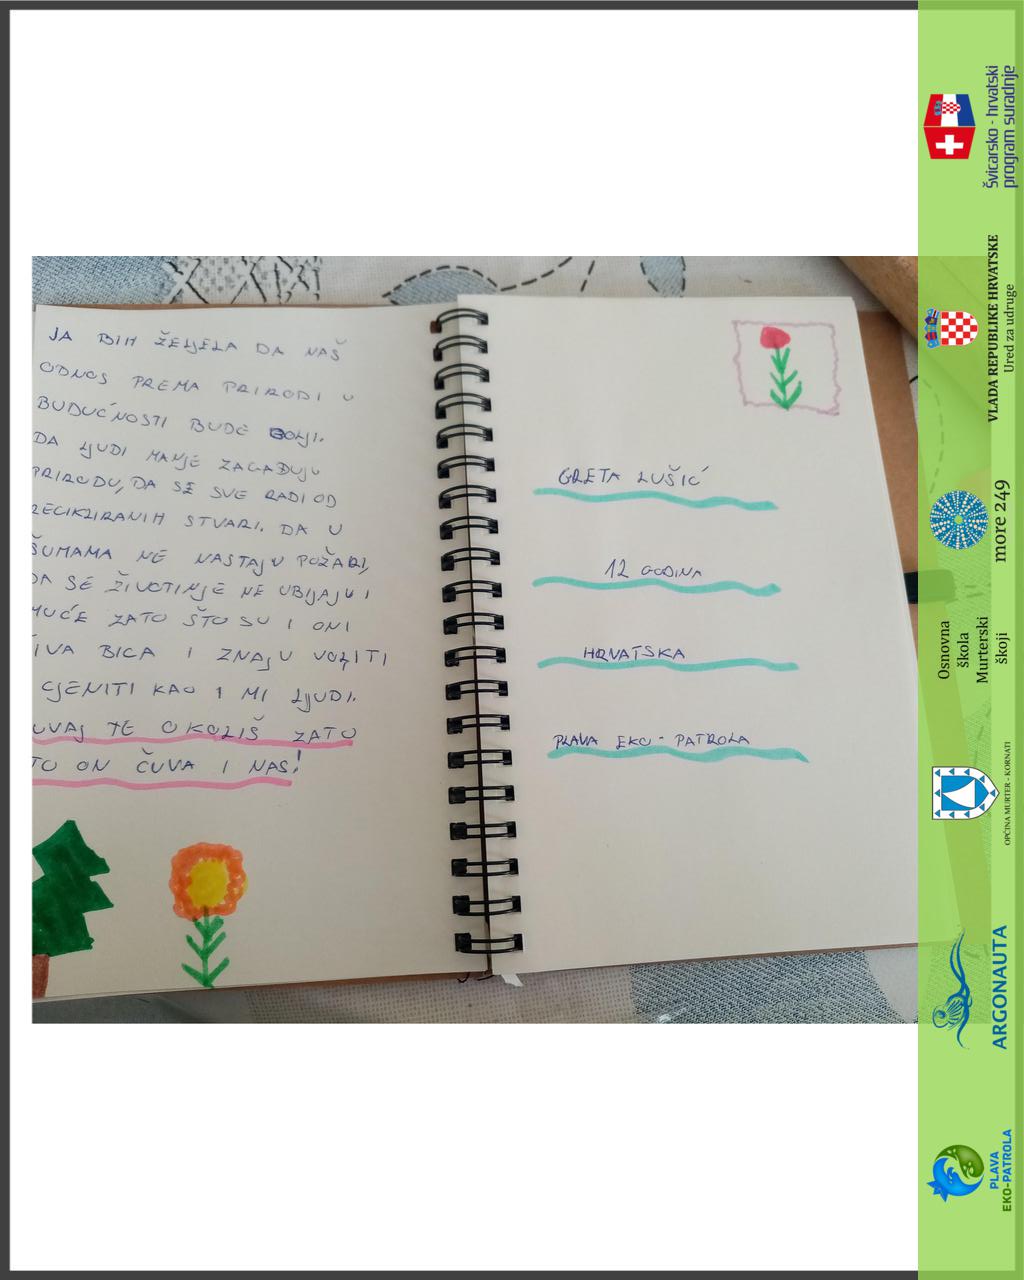 JA BIH ŽELJELA DA NAŠ
ODNOS PREMA PRIRODI U
BUDUĆNOSTI BUDE BOLJI.
DA LJUDI MANJE ZAGAĐUJU
PRIRODU, DA SE SVE RADI OD
RECIKLIRANIH STVARI. DA U
ŠUMAMA NE NASTAJU POŽARI,
DA SE ŽIVOTINJE NE UBIJAJU I
MUČE ZATO ŠTO SU I ONI
IVA BICA I ZNAJU VOLITI
CJENITI KAO I MI LJUDI.
UVAJ TE OKOLIŠ ZATO
TO ON ČUVA I NAS!
GRETA LUŠIĆ
12 GODINA
HRVATSKA
PLAVA EKO-PATROLA
Švicarsko - hrvatski
program suradnje
VLADA REPUBLIKE HRVATSKE
Ured za udruge
more 249
Osnovna
škola
Murterski
škoji
OPĆINA MURTER - KORNATI
ARGONAUTA
PLAVA
EKO-PATROLA